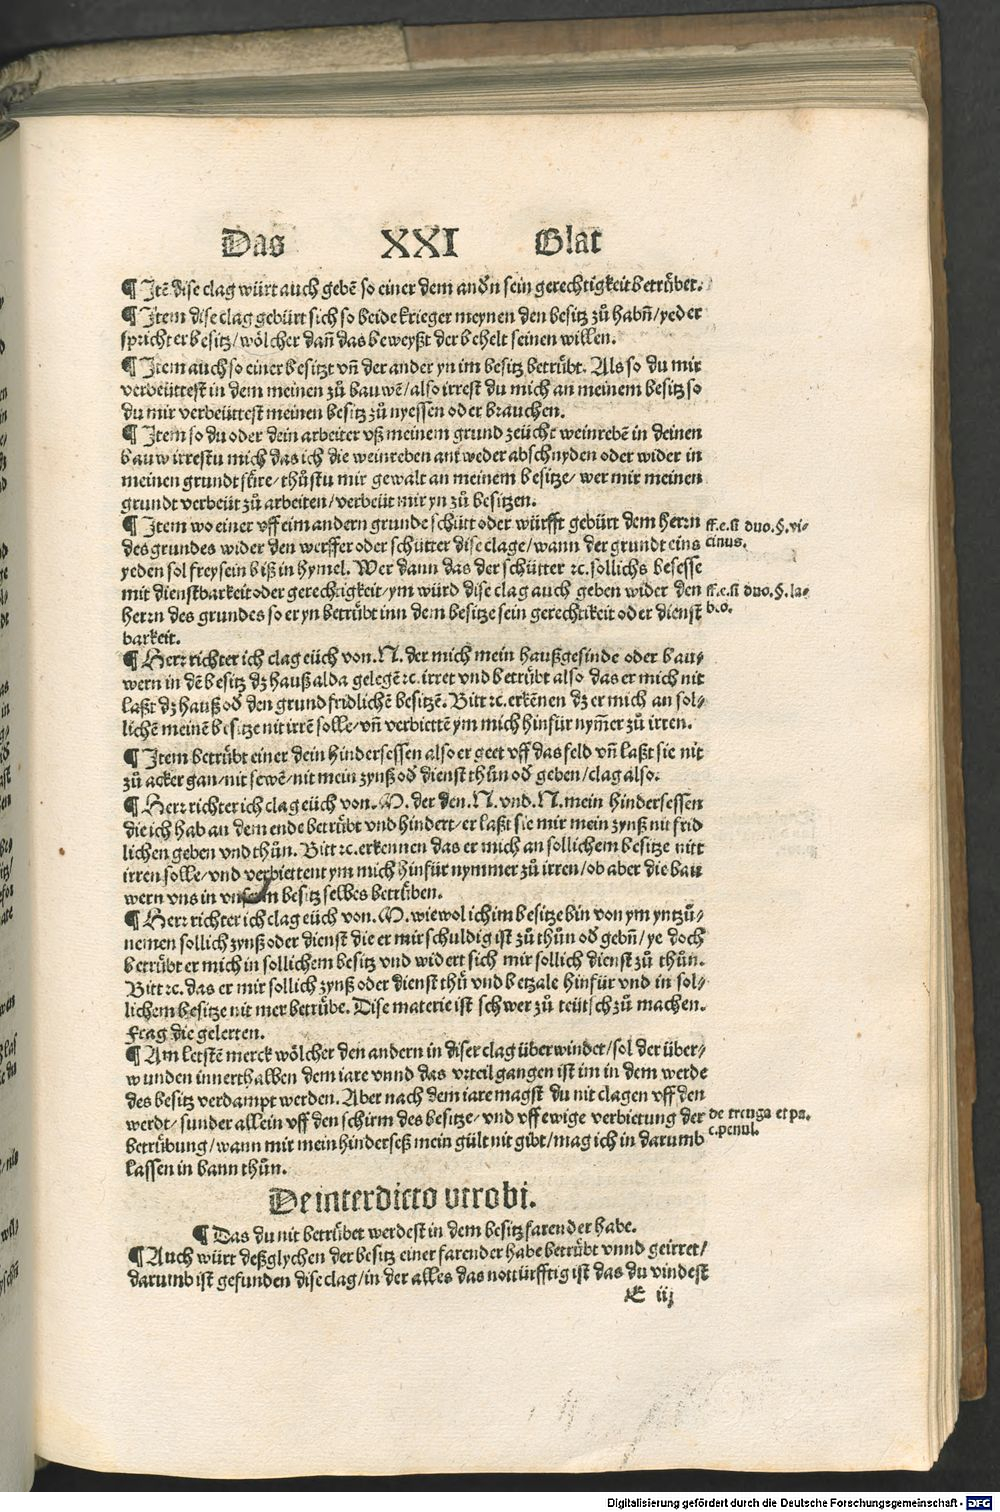 Das XXI Blat
¶ Jtē dise clag würt auch gebē so einer dem andn̄ sein gerechtigkeit betrübet.
¶ Jtem dise clag gebürt sich so beide krieger meynen den besitz zů habn̄/yeder
spricht er besitz/wölcher dañ das beweyßt der behelt seinen willen.
¶ Jtem auch so einer besitzt vñ der ander yn im besitz betrübt. Als so du mir
verbeüttest in dem meinen zů bauwē/also irrest du mich an meinem besitz so
du mir verbeüttest meinen besitz zů nyessen oder brauchen.
¶ Jtem so du oder dein arbeiter vß meinem grund zeücht weinrebē in deinen
bauw irrestu mich das ich die weinreben antweder abschnyden oder wider in
meinen grundt füre/thůstu mir gewalt an meinem besitze/wer mir meinen
grundt verbeüt zů arbeiten/verbeüt mir yn zů besitzen.
¶ Jtem wo einer vff eim andern grunde schütt oder würfft gebürt dem herrn
des grundes wider den werffer oder schütter dise clage/wann der grundt eins
yeden sol frey sein biß in hymel. Wer dann das der schütter ꝛc. sollichs besesse
mit dienstbarkeit oder gerechtigkeit/ym würd dise clag auch geben wider den
herrn des grundes so er yn betrübt inn dem besitze sein gerechtikeit oder dienst
barkeit.
ff.e.si duo.§.vi-
cinus.
ff.e.si duo.§.la-
beo.
¶ Herr richter ich clag eüch von .N. der mich mein haußgesinde oder bau-
wern in dē besitz dz hauß alda gelegē ꝛc. irret vnd betrübt also das er mich nit
laßt dz hauß od den grund fridlichē besitzē. Bitt ꝛc. erkēnen dz er mich an sol-
lichē meinē besitze nit irrē solle/vñ verbiettē ym mich hinfür nym̄er zů irren.
¶ Jtem betrübt einer dein hindersessen also er geet vff das feld vñ laßt sie nit
zů acker gan/nit sewē/nit mein zynß od dienst thůn od geben/clag also.
¶ Herr richter ich clag eüch von .M. der den .N. vnd .N. mein hindersessen
die ich hab an dem ende betrübt vnd hindert/er laßt sie mir mein zynß nit frid
lichen geben vnd thůn. Bitt ꝛc. erkennen das er mich an sollichem besitze nitt
irren solle/vnd verbiettent ym mich hinfür nymmer zů irren/ob aber die bau
wern vns in vnserm besitz selbes betrüben.
¶ Herr richter ich clag eüch von .M. wiewol ich im besitze bin von ym yntzů-
nemen sollich zynß oder dienst die er mir schuldig ist zů thůn od gebn̄/ye doch
betrübt er mich in sollichem besitz vnd widert sich mir sollich dienst zů thůn.
Bitt ꝛc. das er mir sollich zynß oder dienst thů vnd betzale hinfür vnd in sol-
lichem besitze nit mer betrübe. Dise materie ist schwer zů teütsch zů machen.
Frag die gelerten.
¶ Am letstē merck wölcher den andern in diser clag überwindet/sol der über-
wunden innerthalben dem iare vnnd das vrteil gangen ist im in dem werde
des besitz verdampt werden. Aber nach dem iare magst du nit clagen vff den
werdt/sunder allein vff den schirm des besitze/vnd vff ewige verbietung der
betrübung/wann mir mein hinderseß mein gült nit gibt/mag ich in darumb
lassen in bann thůn.
de treuga et pa.
c.penul.
De interdicto vtrobi.
¶ Das du nit betrübet werdest in dem besitz farender habe.
¶ Auch würt deßglychen der besitz einer farender habe betrübt vnnd geirret/
darumb ist gefunden dise clag/in der alles das notturfftig ist das du vindest
E iij
Digitalisierung gefördert durch die Deutsche Forschungsgemeinschaft - DFG